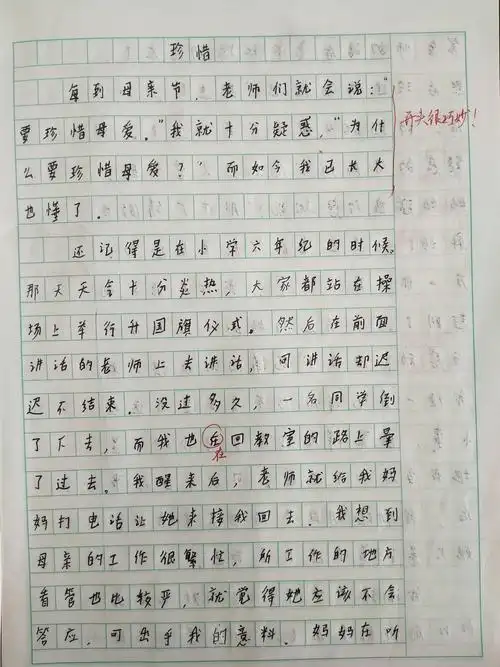 珍惜
每到母亲节,老师们就会说:"
要珍惜母爱。"我就十分疑惑,"为什
么要珍惜母爱?"而如今我已长大
也懂了。
开头很巧妙!
还记得是在小学六年纪的时候,
那天天会十分炎热,大家都站在操
场上举行升国旗仪式。然后在前面
讲话的老师上去讲话,可讲话却迟
迟不结束。没过多久,一名同学倒
了下去,而我也在回教室的路上晕
在
了过去。我醒来后,老师就给我妈
妈打电话让她来接我回去。我想到
母亲的工作很繁忙,所工作的地方
看管也比较严,就觉得她应该不会
答应,可出乎我的意料,妈妈在听